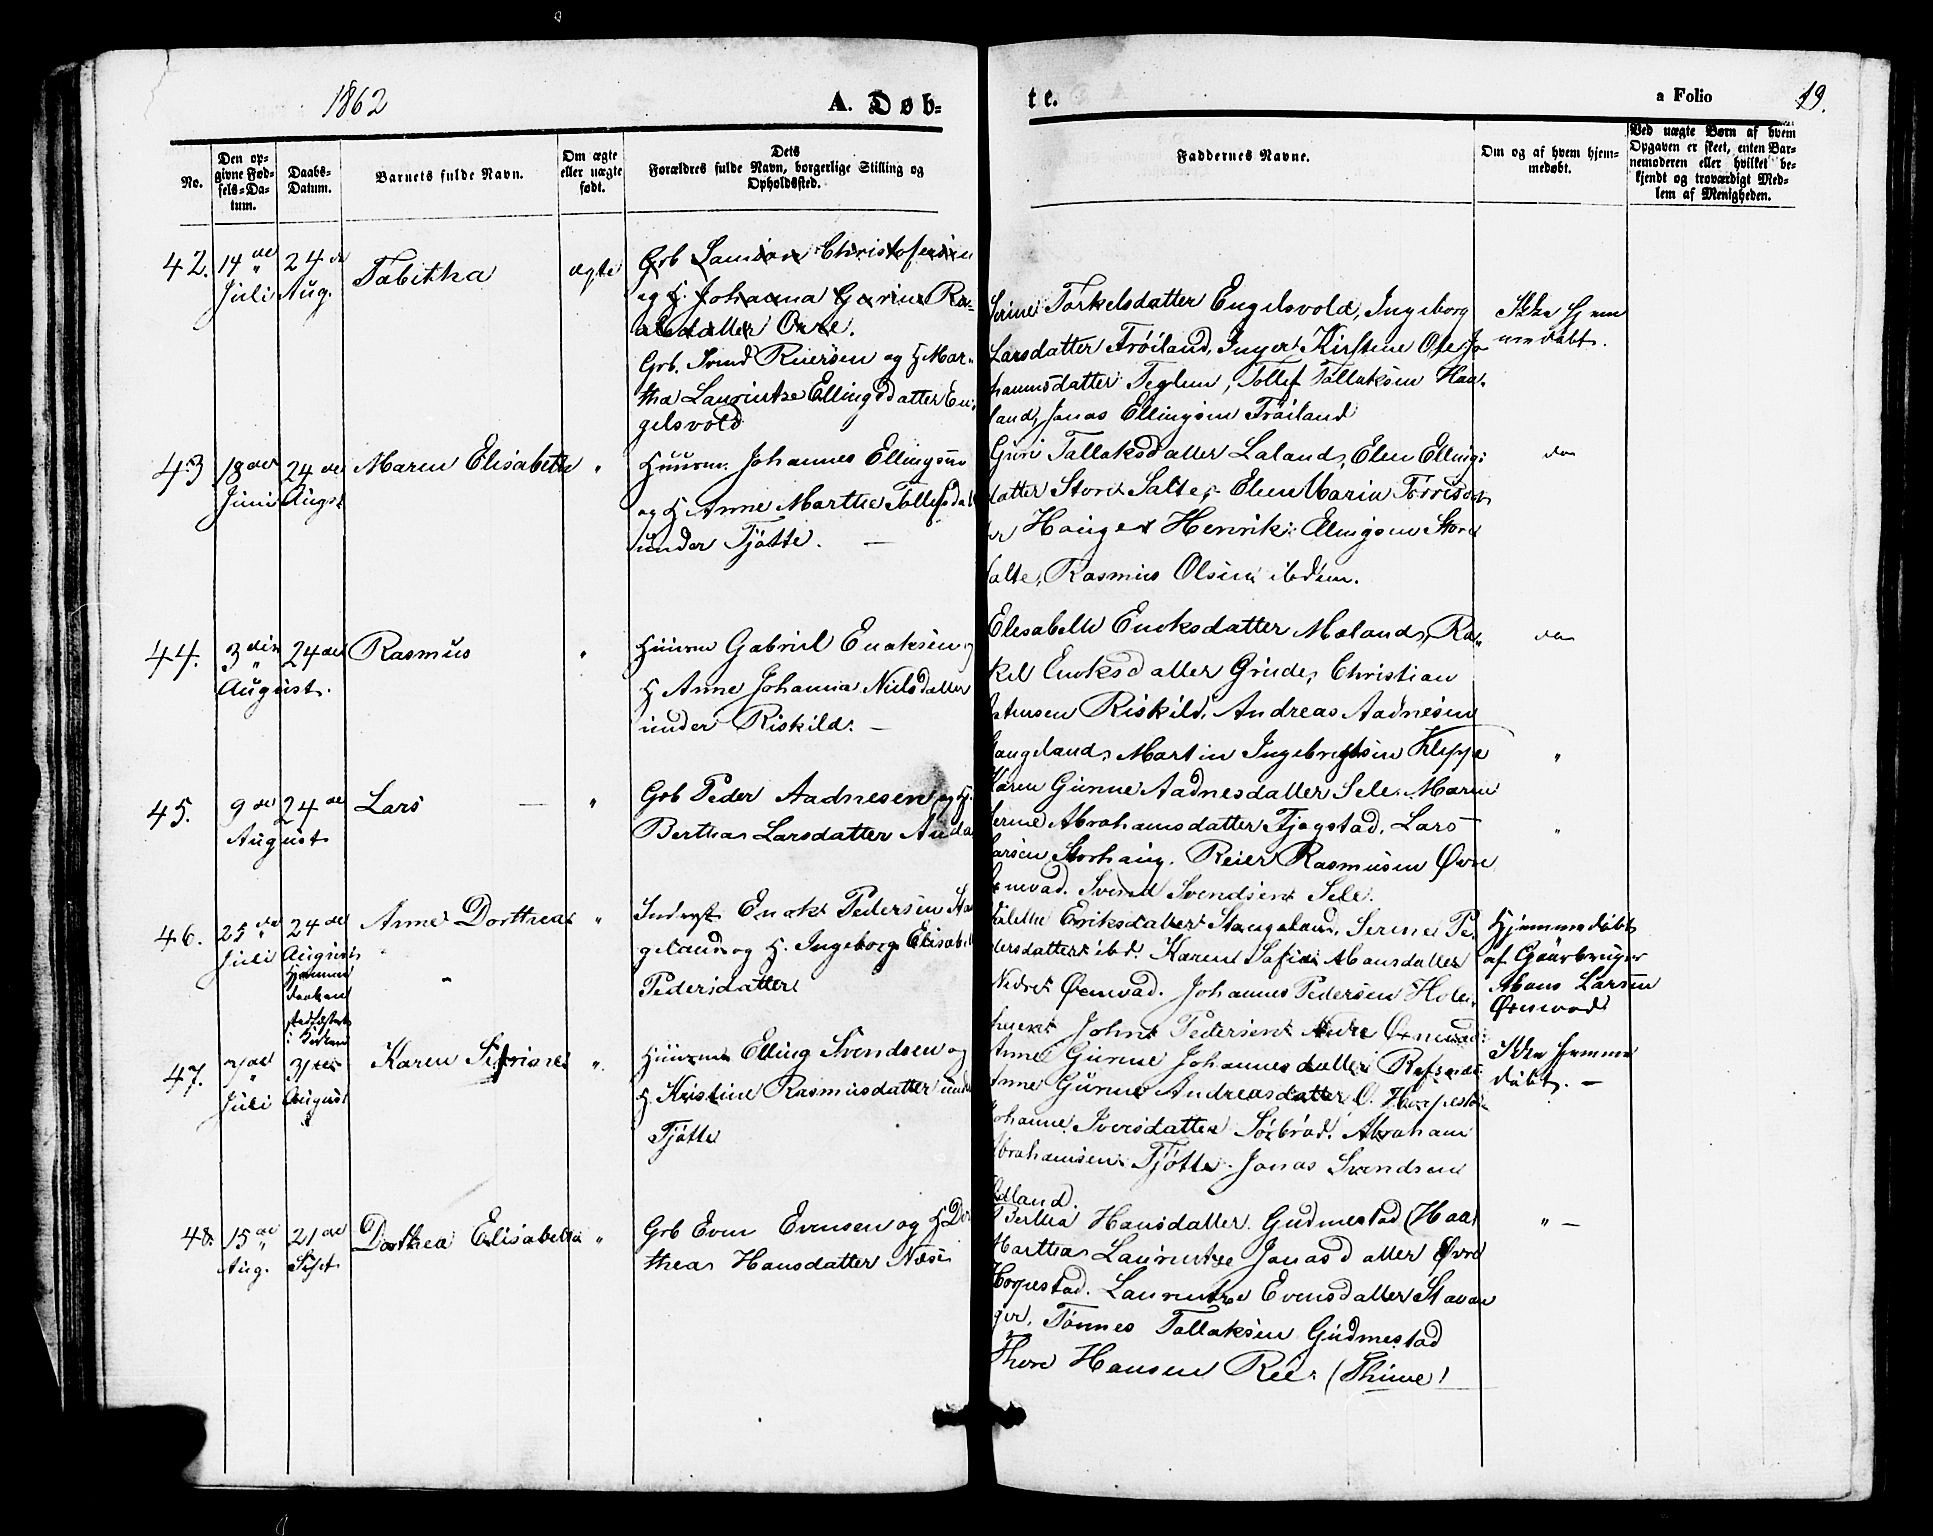 1862
A. Døb-
te.
a Folio
19.
No.
Den op-
givne Fød-
sels-Da-
tum.
Daabs-
Datum.
Barnets fulde Navn.
Om ægte
eller uægte
født.
Dets
Forældres fulde Navn, borgerlige Stilling og
Opholdssted.
Faddernes Navne.
Om og af hvem hjem-
medøbt.
Ved uægte Børn af hvem
Opgaven er skeet, enten Bar-
nemoderen eller hvilket be-
kjendt og troværdigt Med-
lem af Menigheden.
42.
14de
Juli
24de
Aug.
Tabitha
ægte
Grb Samson Christofersen
og H. Johanna Gurine Ra-
Orre.
Grb. Svend Reiersen og H Mar-
tha Laurintze Ellingsdatter En-
gelsvold
Serine Torkelsdatter Engelsvold, Ingeborg
Larsdatter Frøiland, Inger Kirstine Ose Jo-
hannesdatter Teglen, Tollef Tollaksen Haa-
land, Jonas Ellingsen Frøiland
Ikke hjem
medøbt.
43
18de
Juni
24de
Augst
Maren Elisabeth
"
Huusm. Johannes Ellingsen
og H Anne Marthe Tollefsdat
under Tjøtte. —
Guri Tallaksdatter Laland, Elen Ellings
datter Store Salte, Elen Maria Torrisdat
er Hauge Henrik Ellingsen Store
Salte, Rasmus Olsen ibdem.
do
44.
3die
August.
24de
Rasmus
"
Huusm Gabriel Enoksen og
H Anne Johanna Nielsdatter
under Riskild. —
Elisabeth Enoksdatter Møland, Ra-
kel Enoksdatter Grude, Christian
Riskild, Andreas Aadnesen
Stangeland, Martin Ingebretsen Kleppe
do
"
45.
9de
August
24de
Lars —
"
Grb Peder Aadnesen og H.
Bertha Larsdatter Anda
Karen Gunne Aadnesdatter Sele. Maren
Serine Abrahamsdatter Tjøgstad. Lars
Larsen Storhaug. Reier Rasmusen Øvre
Øxnevad. Svend Svendsen Sele.
"
46.
25de
Juli
24de
August
Hjemme
daaben
stadfæstet
i Kirken
Anne Dorthea
"
Inderst Enok Pedersen Stan
geland og H. Ingeborg Elisabeth
Pedersdatter
Eriksdatter Stangeland, Serine Pe-
dersdatter ibd. Karen Sofie Monsdatter
Nedre Øxnevad. Johannes Pedersen Hole
John Pedersen Nedre Øxnevad
Hjemmedøbt
af Gaarbruger
Mons Larsen
Øxnevad
47.
7de
Juli
31te
August
Karen Sifriane
"
Huusm Elling Svendsen og
H Kristine Rasmusdatter under
Tjøtte
Anne Gunne Johannesdatter Refsnæs
Anne Gurine Andreasdatter O. Horpestad
Johanne Iversdatter Sørbrød. Abraham
Abrahamsen Tjøtte. Jonas Svendsen
Adland.
Ikke hjemme
døbt. —
48.
15de
Aug.
21de
Sept
Dorthea Elisabetha
"
Grb Even Evensen og H Dor
thea Hansdatter Næse
Berthia Hansdatter Gudmestad (Haa)
Marthea Laurintze Jonasdatter Øvre
Horpestad. Laurintze Evensdatter Stavan
ger. Tønnes Tollaksen Gudmestad
Thore Hansen Ree (Thime)
" —